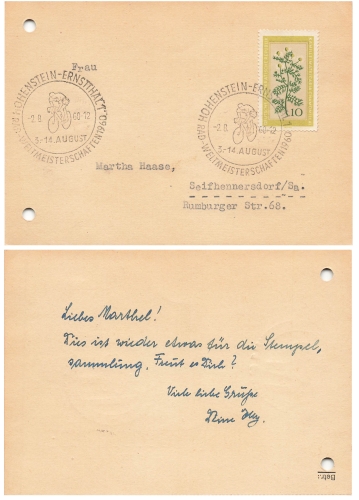 Frau
HOHENSTEIN-ERNSTTHAL 1
-2.8 60-12
3.-14. AUGUST
RAD-WELTMEISTERSCHAFTEN 1960
HOHENSTEIN-ERNSTTHAL
-2.8 60-12
3.-14. AUGUST
RAD-WELTMEISTERSCHAFTEN 1960
10
Martha Haase,
Seifhennersdorf/Sa.
Rumburger Str.68.
Liebes Marthel!
Dies ist wieder etwas für die Stempel-
sammlung. Freut es Dich?
Viele liebe Grüße
Betr.: